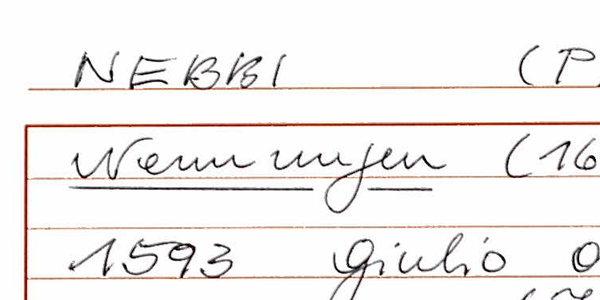 NEBBI (P.
Nennungen (16
1593 Giulio O